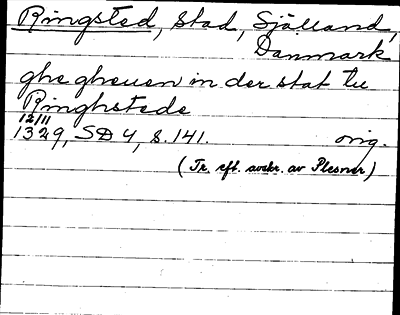 Ringsted, stad, Själland,
Danmark
ghe gheuen in der stat tu
Ringhstede
12/11
1329, SD 4, s. 141. orig.
(Tr. eft. avskr. av Plesner)